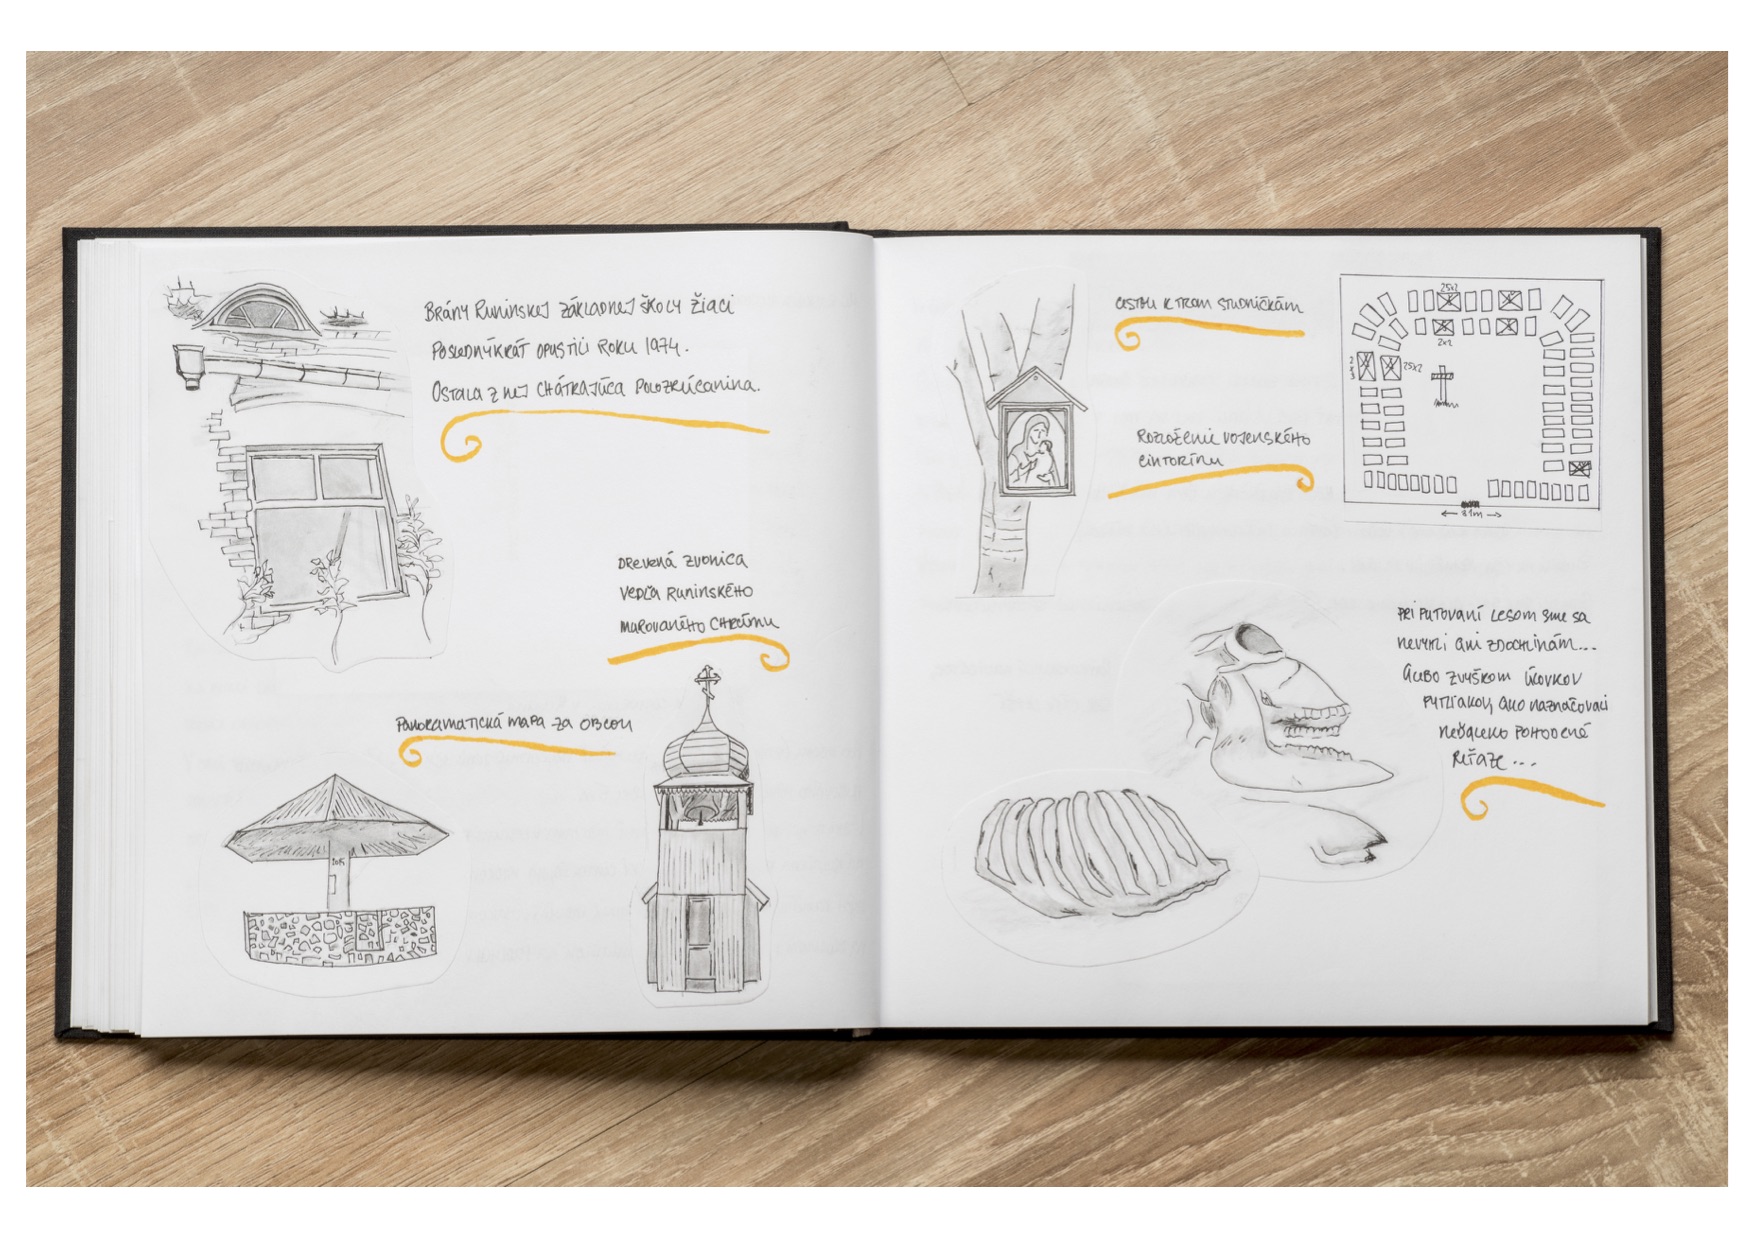 Brány Runinskej základnej školy žiaci
poslednýkrát opustili roku 1974.
Ostala z nej chátrajúca polozrúcanina.
Drevená zvonica
vedľa Runinského
murovaného chrámu
Panoramatická mapa za obcou
2015
Cestou k trom studničkám
Rozloženie vojenského
cintorína
25x2
2x2
25x2
31m
Pri putovaní lesom sme sa
nevyhli ani zdochlinám...
Alebo zvyškom úlovkov
pytliakov, ako naznačovali
neďaleko pohodené
reťaze...